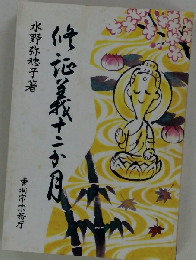 修証義十二か月
水野弥穂子著
曹洞宗宗務庁